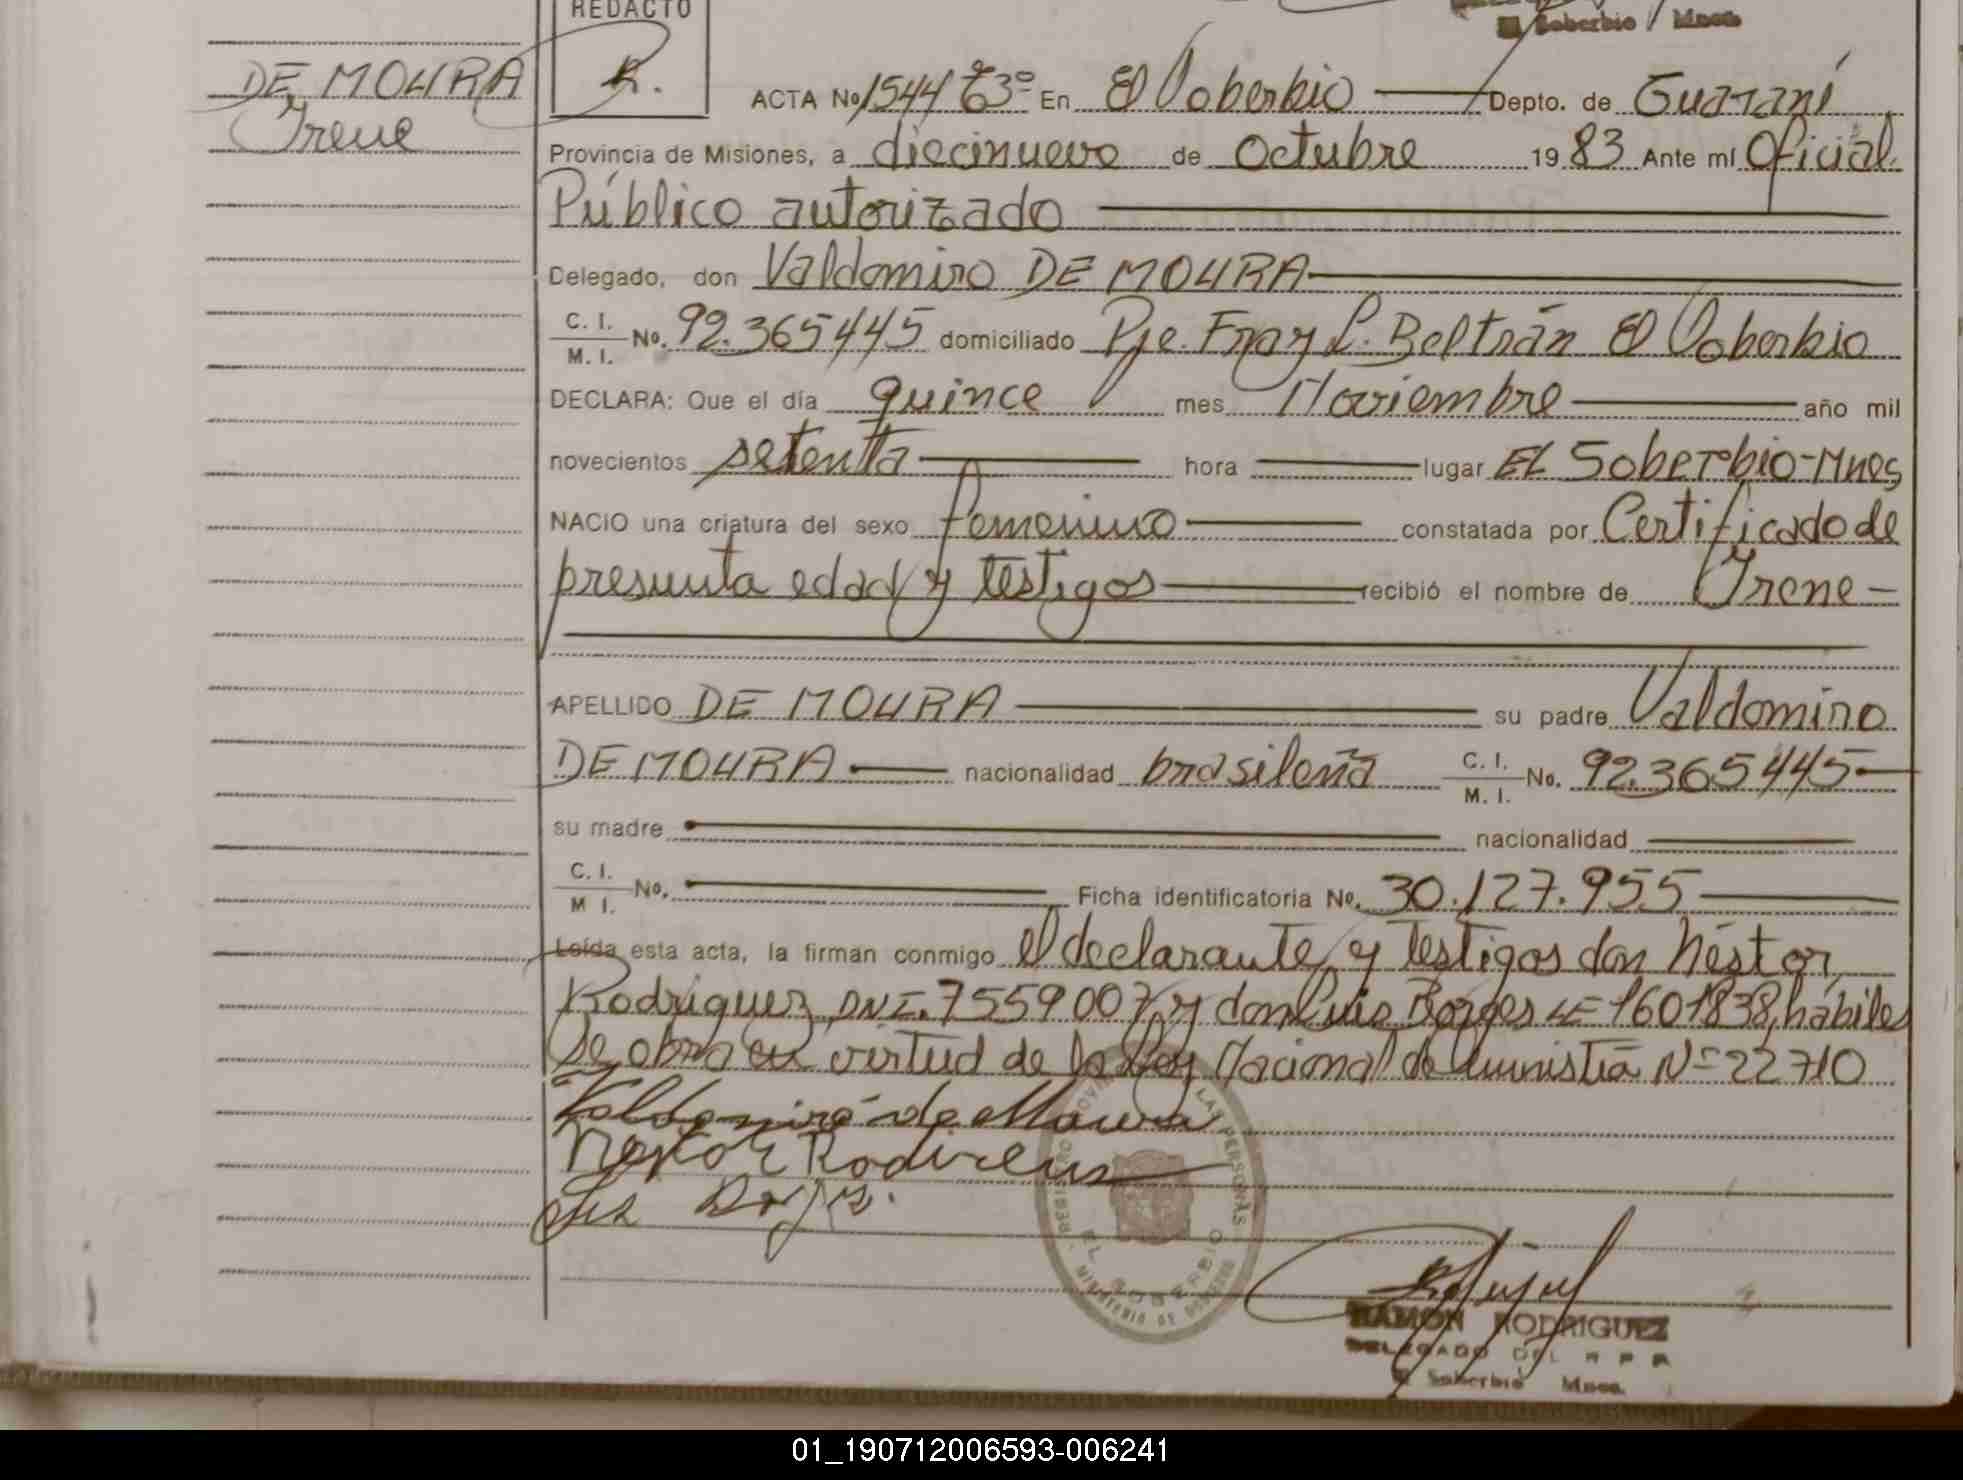 REDACTO
Soberbio Mnes.
DE MOURA
Irene
R.
ACTA No 1544 Tº 3º En El Soberbio Depto. de Guaraní
Provincia de Misiones, a diecinueve de Octubre 19 83 Ante mí Oficial
Público autorizado
Delegado, don Valdomiro DE MOURA
C. I.
M. I. No. 92.365445 domiciliado Pje. Fray L. Beltrán El Soberbio
DECLARA: Que el día quince mes Noviembre año mil
novecientos setenta hora lugar EL Soberbio-Mnes
NACIO una criatura del sexo femenino constatada por Certificado de
presunta edad y testigos recibió el nombre de Irene
APELLIDO DE MOURA su padre Valdomiro
DE MOURA nacionalidad brasileña C. I. M. I. No. 92.365445
su madre nacionalidad
C. I.
M I. No. Ficha identificatoria No. 30.127.955
Leída esta acta, la firman conmigo el declarante y testigos don Néstor
Rodriguez DNI. 7559007, y don Luis Borges LE 1601838, hábiles
Se obra en virtud de la Ley Nacional de Amnistía Nº 22710
Valdomiro de Moura
Nestor
EL SOBERBIO
RAMON RODRIGUEZ
DELEGADO DEL R P P
El Soberbio Mnes.
01_190712006593-006241